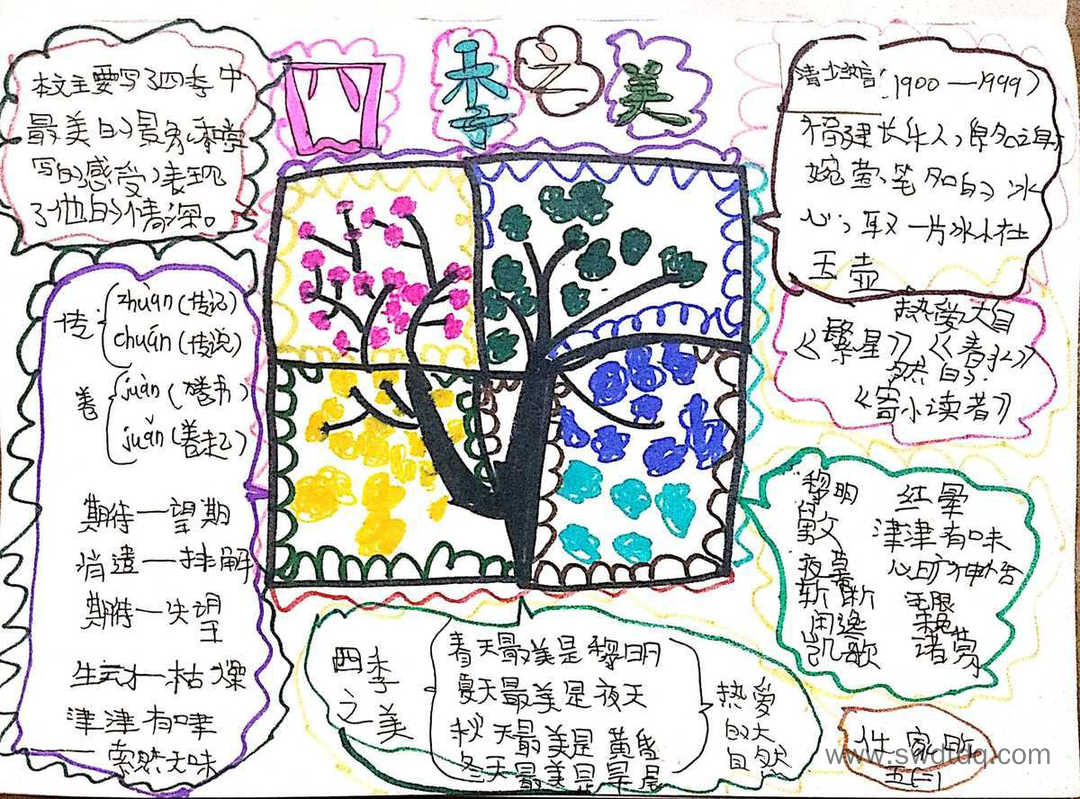 四季之美
本文主要写了四季中
最美的景象和作者
写的感受,表现
了他的情深。
传 zhuàn(传记)
chuán(传说)
卷 juàn(卷书)
juǎn(卷起)
期待—望期
消遣—排解
期待—失望
生动—枯燥
津津有味
索然无味
(1900—1999)
福建长乐人,原名
婉莹 笔名的冰
心,取一片冰心在
玉壶
热爱大自
《繁星》《春水》
然的
《寄小读者》
黎明 红晕
津津有味
夜幕 心旷神怡
闲逸
凯歌
四季之美
春天最美是黎明
夏天最美是夜天
秋天最美是黄昏
冬天最美是早晨
热爱
的大
自然
www.swdtdq.com